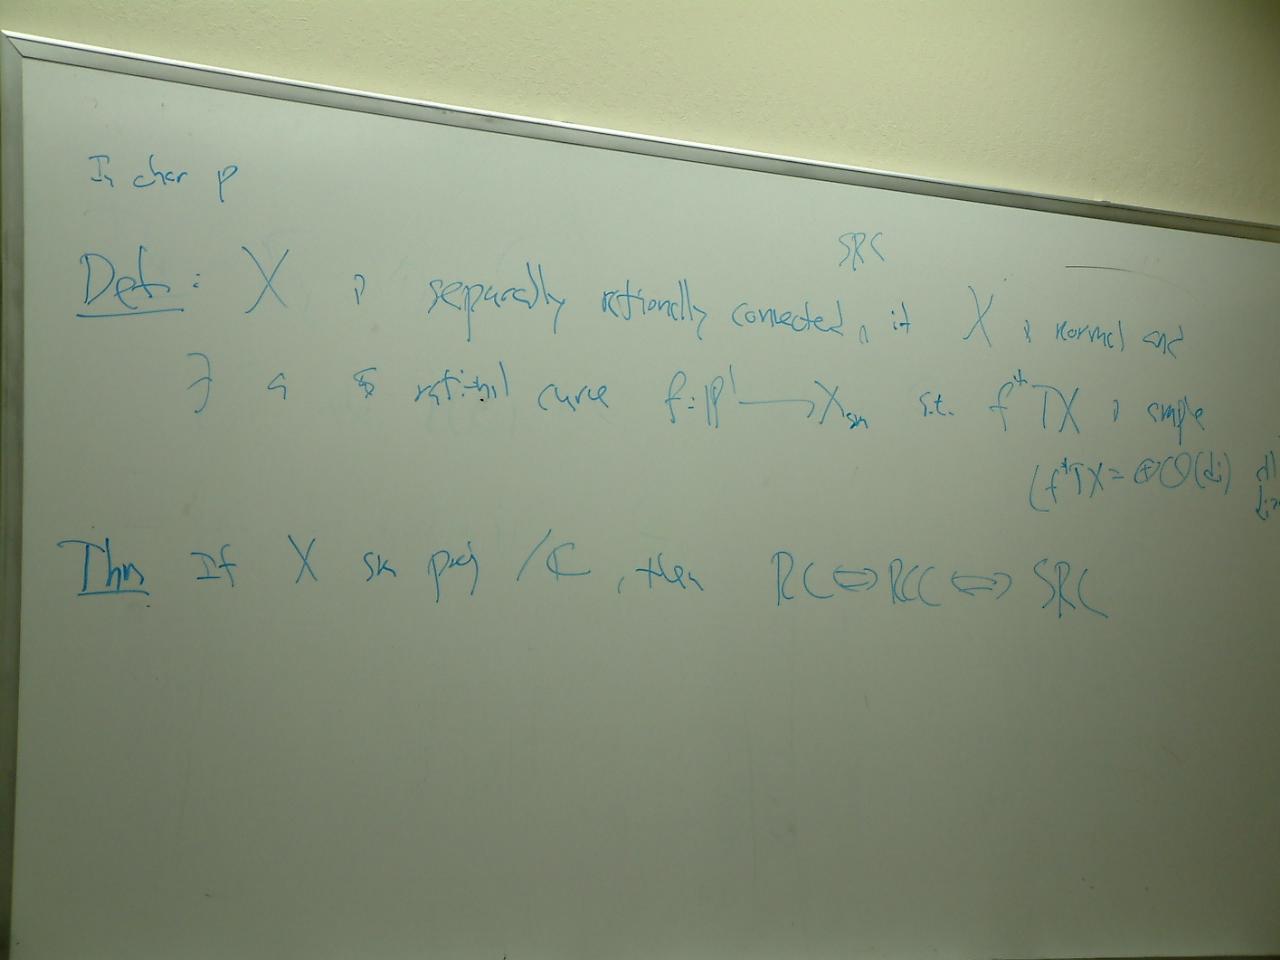 In char p
SRC
Def: X is separably rationally connected, if X is normal and
∃ a rational curve f: ℙ¹ ⟶ X_sm s.t. f*TX is ample
(f*TX = ⊕O(di) all
Thm If X sm proj /ℂ, then RC ⇔ RCC ⇔ SRC